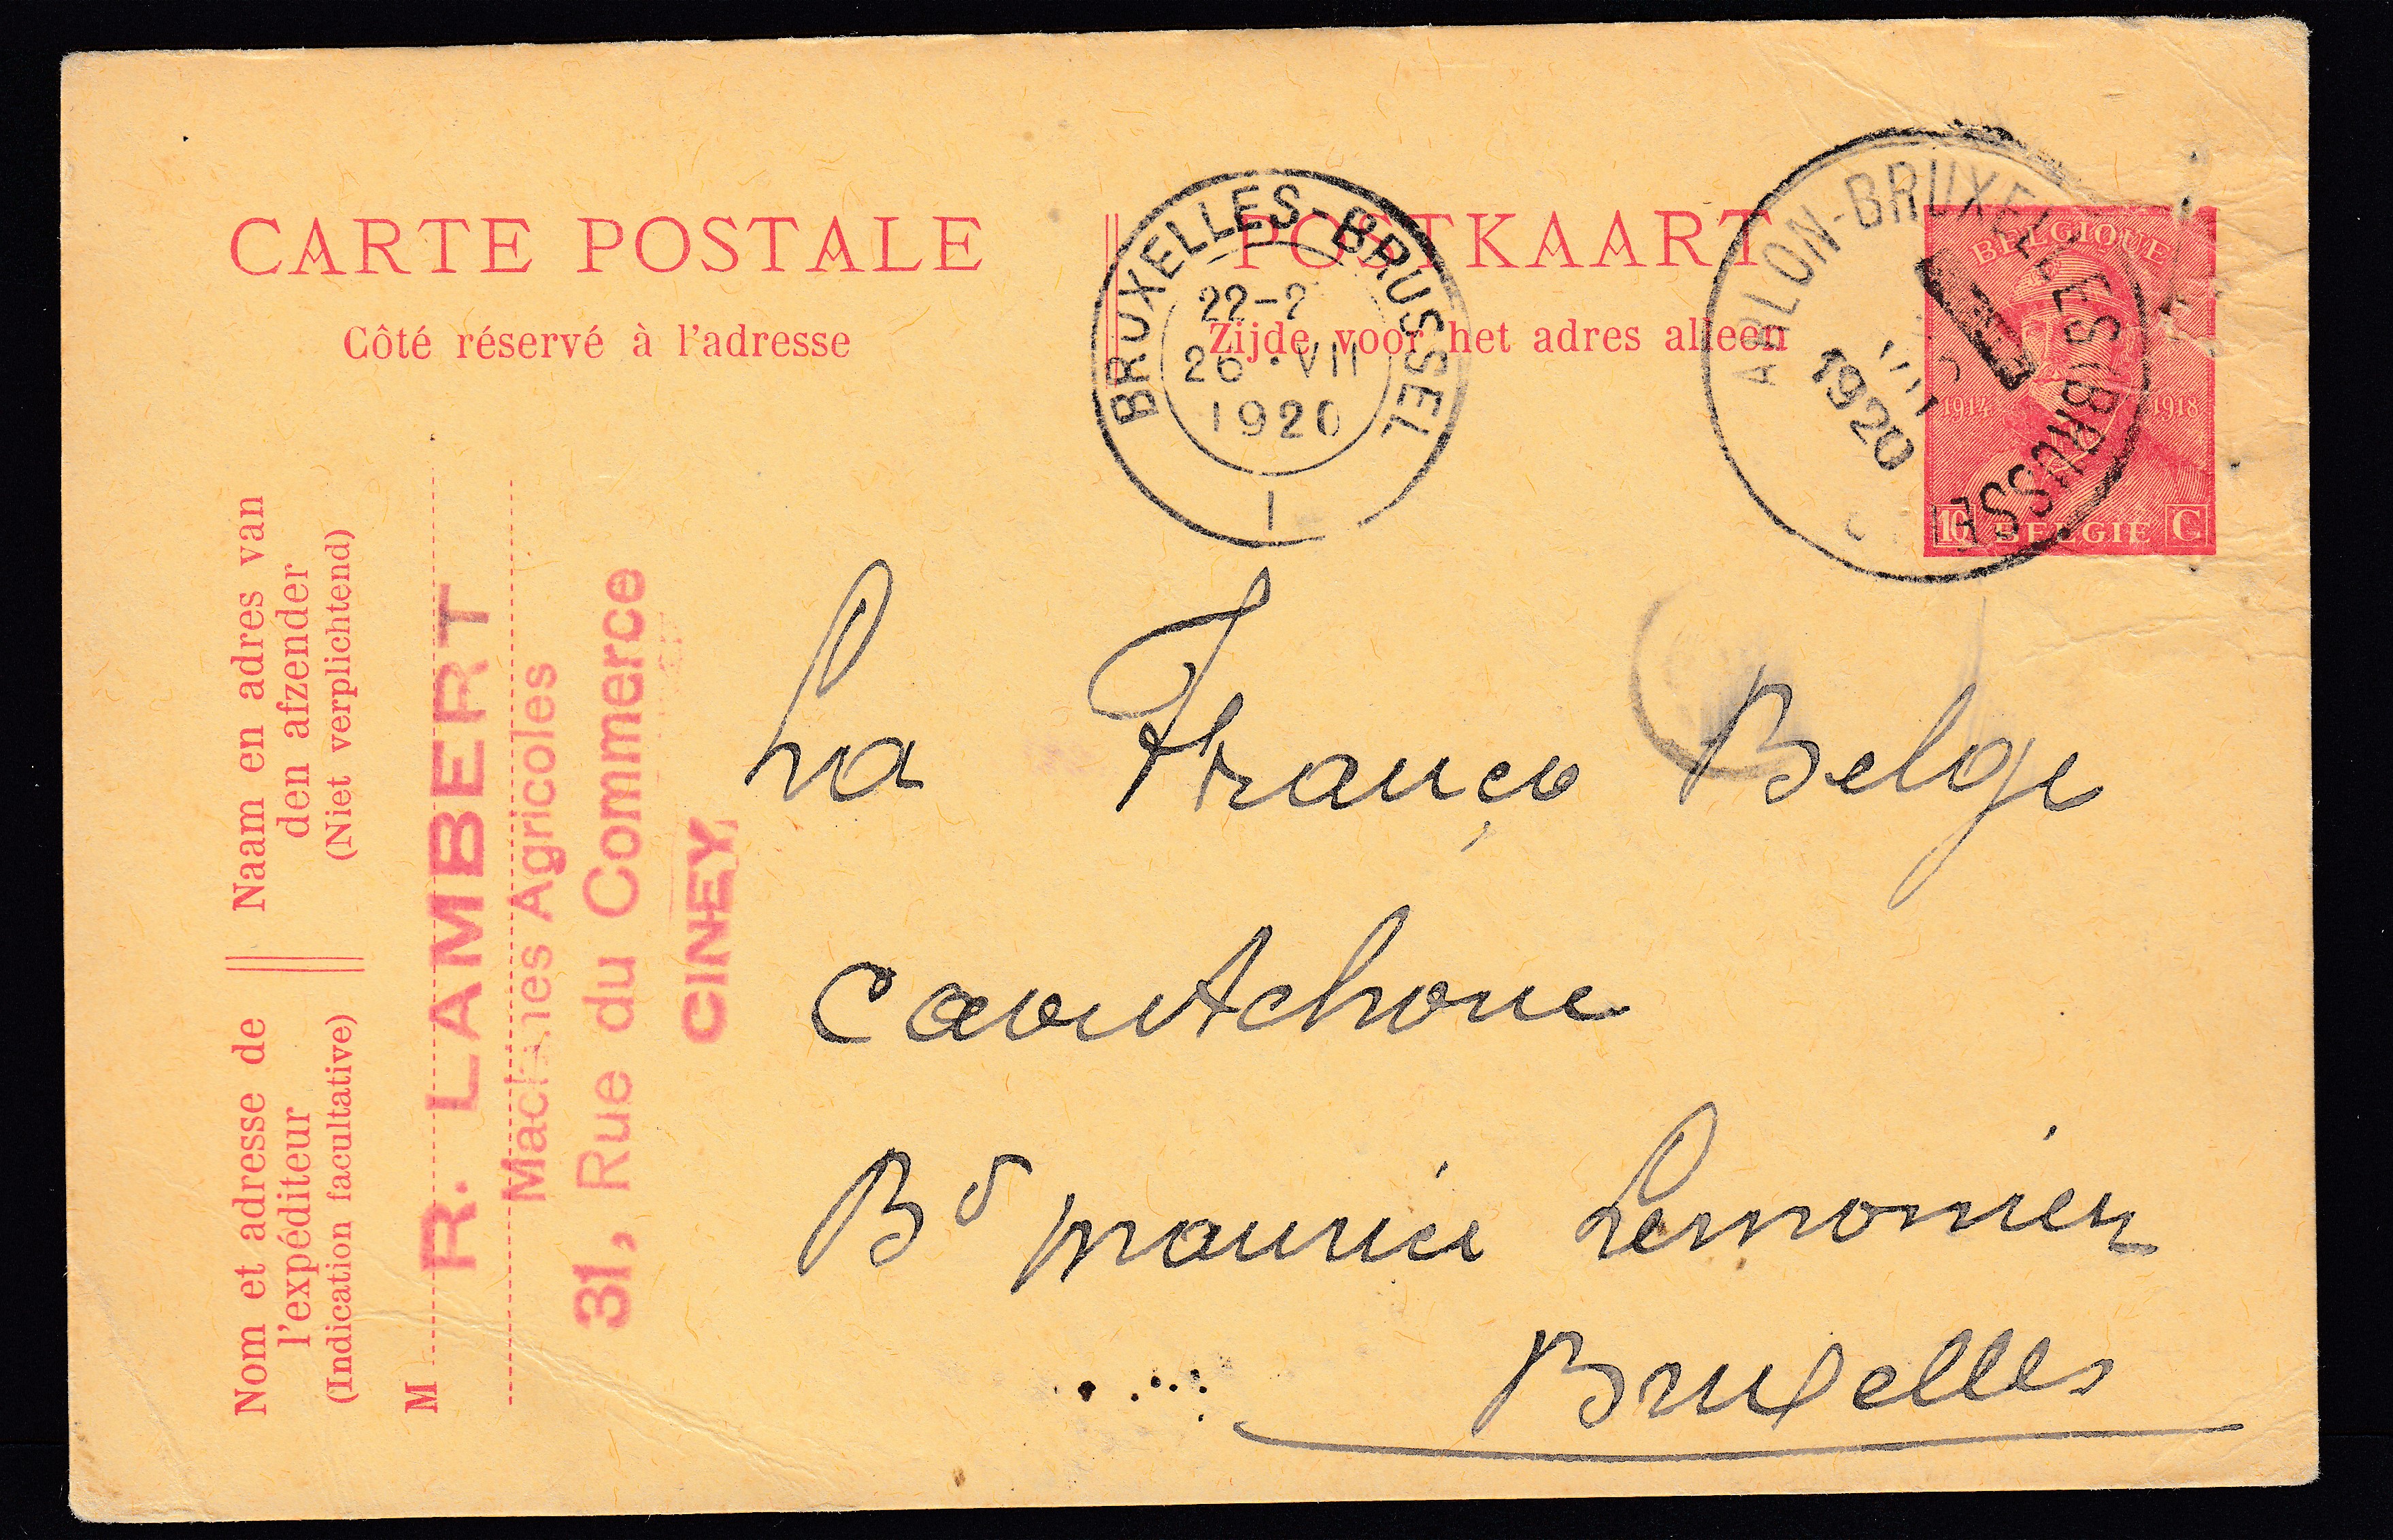 CARTE POSTALE
Côté réservé à l'adresse
POSTKAART
Zijde voor het adres alleen
BRUXELLES-BRUSSEL
22-2
26 · VII
1920
1
ARLON-BRUXELLES(BRUSSE
VII
1920
BELGIQUE
1914 1918
10 BELGIË C
Nom et adresse de
l'expéditeur
(Indication facultative)
Naam en adres van
den afzender
(Niet verplichtend)
M
R. LAMBERT
Machines Agricoles
31, Rue du Commerce
CINEY
La Franço Belge
Caoutchouc
Bd Maurice Lemonier
Bruxelles